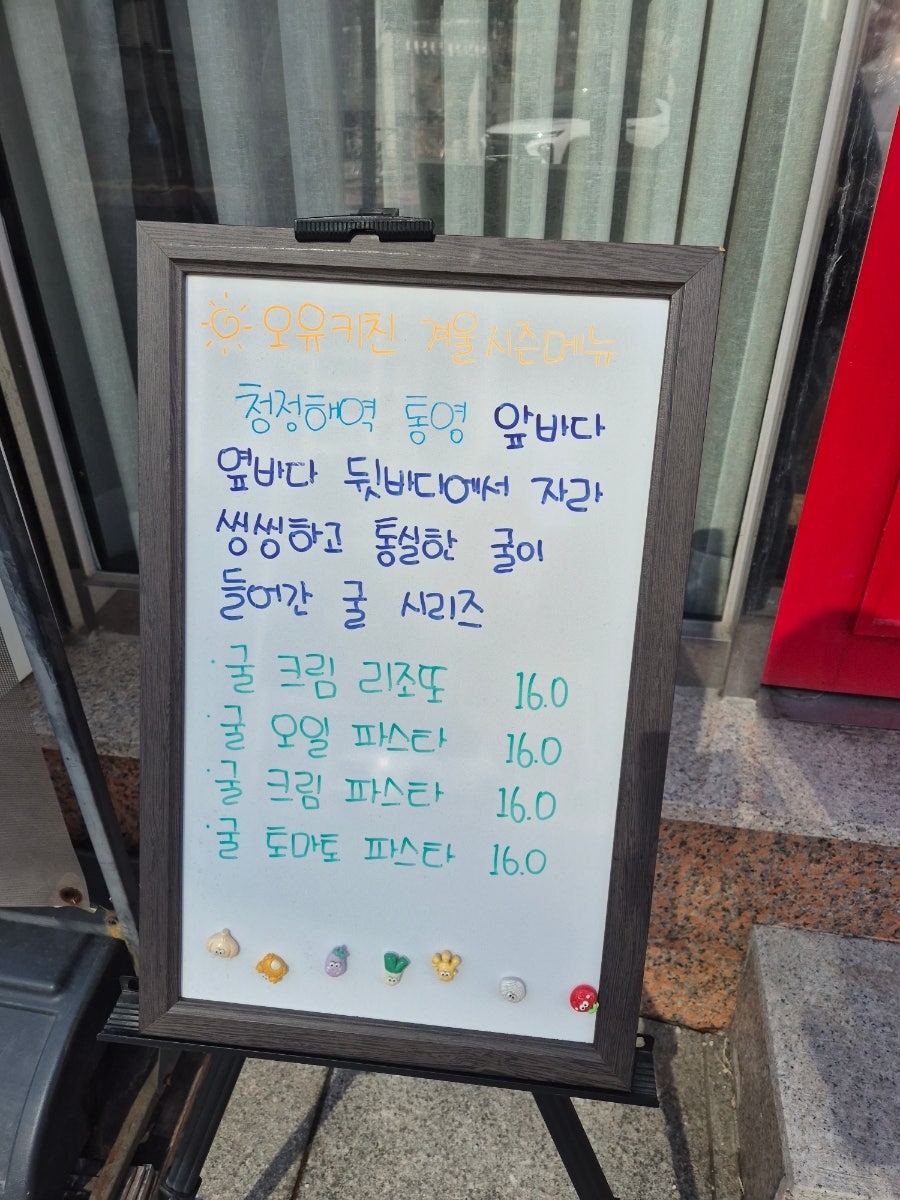 오유키친 겨울시즌메뉴
청정해역 통영 앞바다
옆바다 뒷바다에서 자라
씽씽하고 통실한 굴이
들어간 굴 시리즈
· 굴 크림 리조또 16.0
· 굴 오일 파스타 16.0
· 굴 크림 파스타 16.0
· 굴 토마토 파스타 16.0